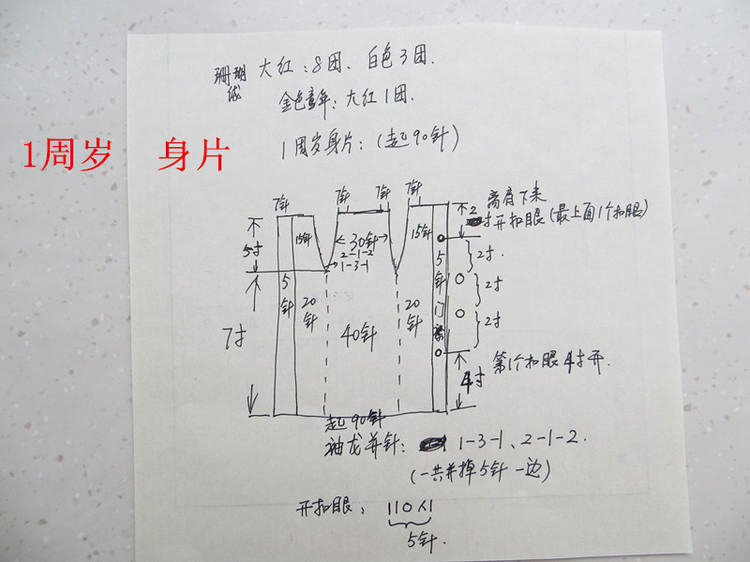 珊瑚绒 大红:8团、白色3团.
金色童年:大红1团.
1周岁 身片
1周岁身片:(起90针)
7针 7针 7针 7针
离肩下来2寸开扣眼(最上面1个扣眼)
5寸 15针 30针 15针
2-1-2
1-3-1
5针 20针 40针 20针 5针门襟
2寸
2寸
2寸
7寸
4寸 第1个扣眼4寸开.
起90针
袖龙并针: 1-3-1、2-1-2.
(一共并掉5针一边)
开扣眼: 110人1
5针.